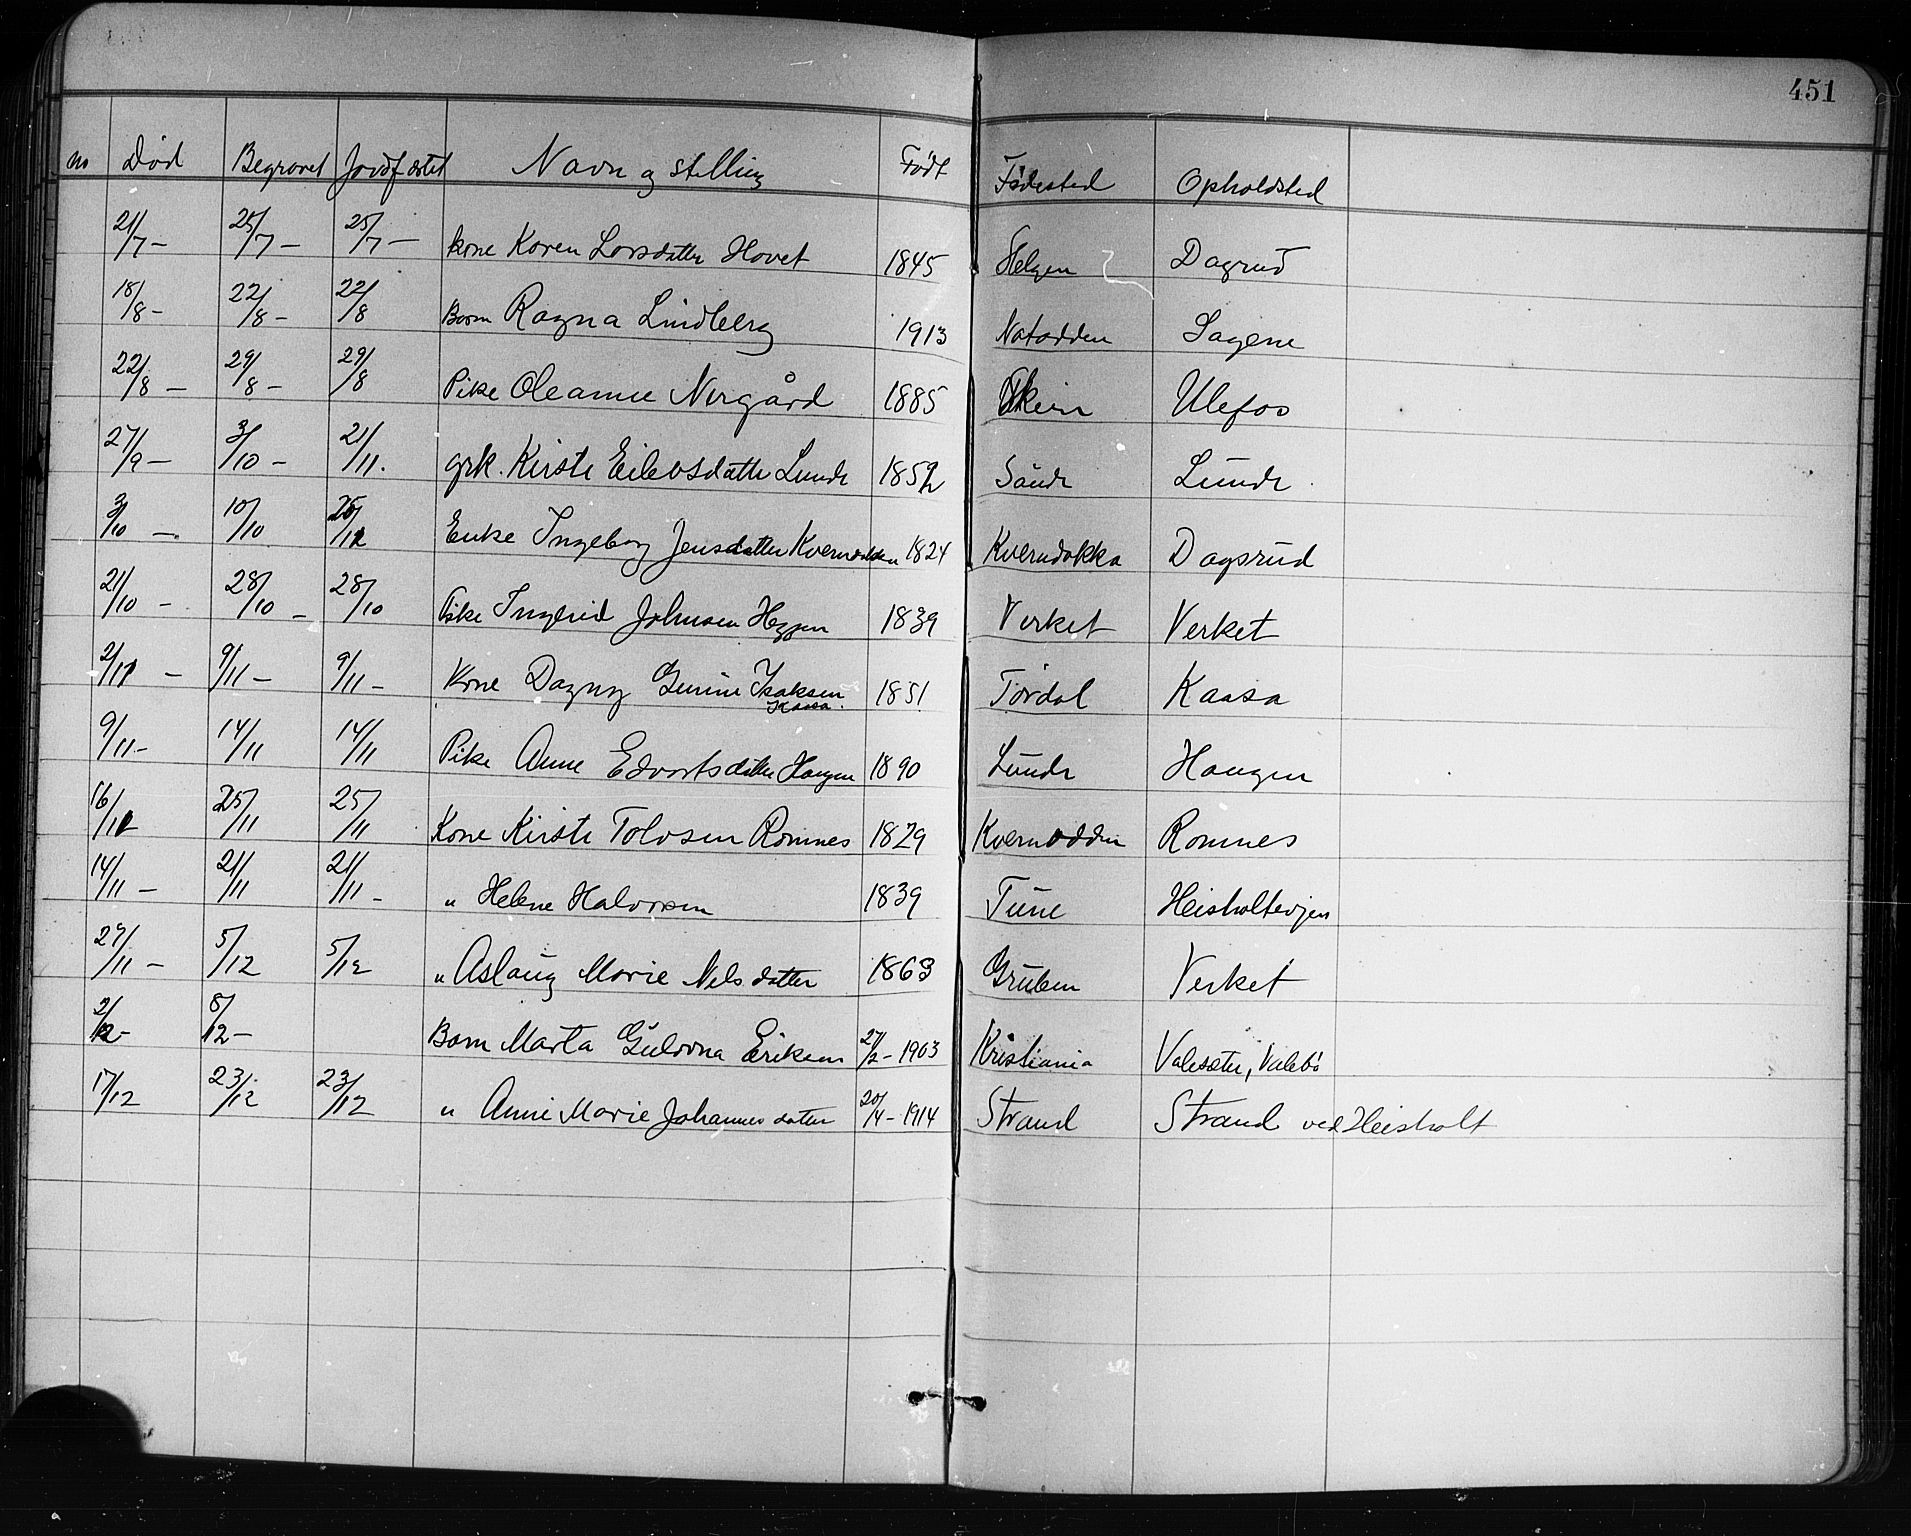 451
No Død Begravet Jordfæstet Navn og stilling Født Fødested Opholdsted
21/7 – 25/7 – 25/7 – kone Karen Larsdatter Hovet 1845 Helgen Dagsrud
18/8 – 22/8 – 22/8 Barn Ragna Lindberg 1913 Notodden Sagene
22/8 – 29/8 – 29/8 Pike Oleanne Nergård 1885 Skien Ulefos
27/9 – 3/10 – 21/11. grk. Kirste Eilevsdatter Lunde 1852 Saude Lunde
3/10 – 10/10 Enke Ingeborg Jensdatter Kvernodden 1824 Kverndokka Dagsrud
21/10 – 28/10 – 28/10 Pike Ingerid Johnsen Heggen 1839 Verket Verket
2/11 – 9/11 – 9/11 – Kone Dagny Gunine Isaksen Kaasa. 1851 Tørdal Kaasa
9/11 – 14/11 14/11 Pike Anne Edvartsdatter Haugen 1890 Lunde Haugen
16/11 25/11 25/11 Kone Kirste Tolvsen Romnes 1829 Kvernodden Romnes
14/11 – 21/11 21/11 – " Helene Halvorsen 1839 Tune Heisholtevjen
27/11 – 5/12 5/12 " Aslaug Marie Nelsdatter 1863 Gruben Verket
2/12 – 8/12 – Barn Marta Gulovna Eriksen 27/2 – 1903 Kristiania Valesæter, Valebø
17/12 23/12 23/12 " Anne Marie Johannesdatter 20/4 – 1914 Strand Strand ved Heisholt